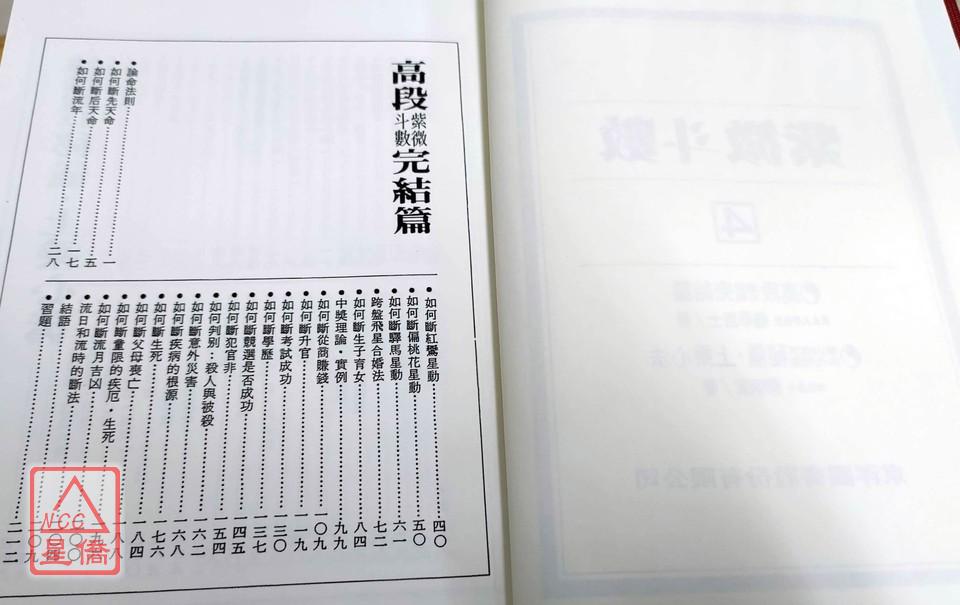 高段紫微斗數完結篇
●論命法則……一
●如何斷先天命……五
●如何斷后天命……一七
●如何斷流年……二八
●如何斷紅鸞星動……四〇
●如何斷偏桃花星動……五〇
●如何斷驛馬星動……六一
●跨盤飛星合婚法……七二
●如何斷生子育女……八四
●中獎理論・實例……九九
●如何斷從商賺錢……一〇九
●如何斷升官……一一九
●如何斷考試成功……一三〇
●如何斷學歷……一三七
●如何斷競選是否成功……一四五
●如何斷犯官非……一五四
●如何判別：殺人與被殺……一六二
●如何斷意外災害……一六八
●如何斷疾病的根源……一七六
●如何斷生死……一八四
●如何斷父母喪亡……一八八
●如何斷童限的疾厄・生死……
●如何斷流月吉凶……
●流日和流時的斷法……
●結語……
●習題……二一二
NCC
星僑
紫微斗數
4